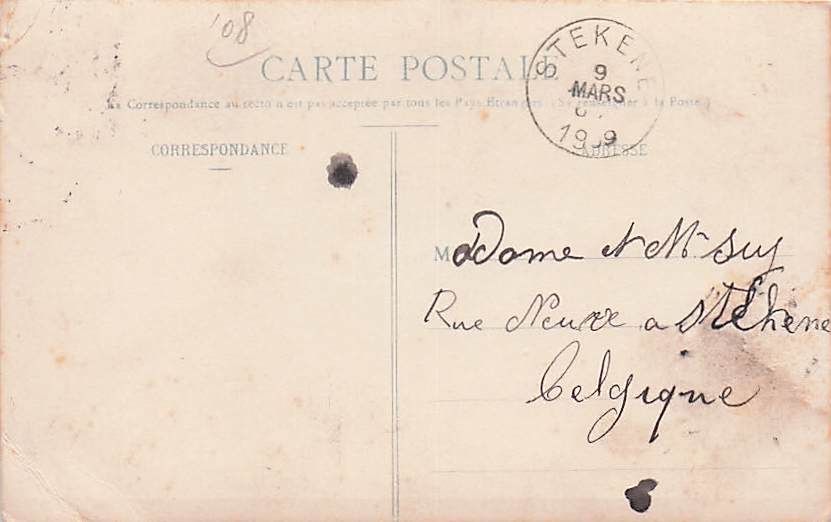 '08
CARTE POSTALE
La Correspondance au recto n'est pas acceptée par tous les Pays Etrangers (Se renseigner à la Poste)
STEKENE
9
MARS
1909
CORRESPONDANCE
ADRESSE
Madame et Mr Suy
Rue Neuve a Stekene
Belgique